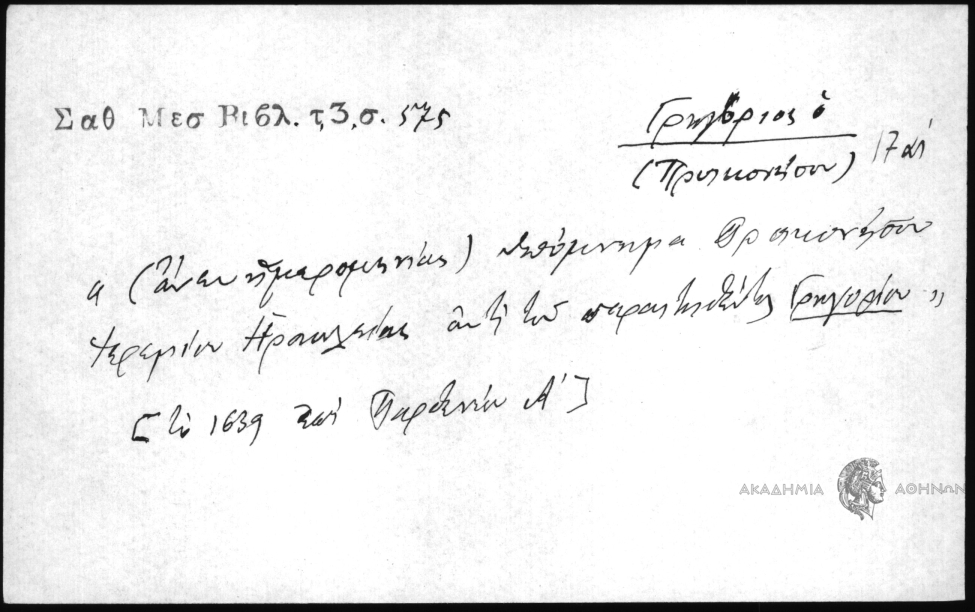 Σαθ Μεσ Βιβλ. τ, 3, σ. 575
Γρηγόριος ὁ
(Προικονήσου) 17 αἰ
« (ἄνευ ἡμερομηνίας) ὑπόμνημα Προικονήσου
Ἱερεμίου Ἡρακλείας ἀντὶ τοῦ παραιτηθέντος Γρηγορίου »
[τὸ 1639 ἐπὶ Παρθενίου Α']
ΑΚΑΔΗΜΙΑ ΑΘΗΝΩΝ